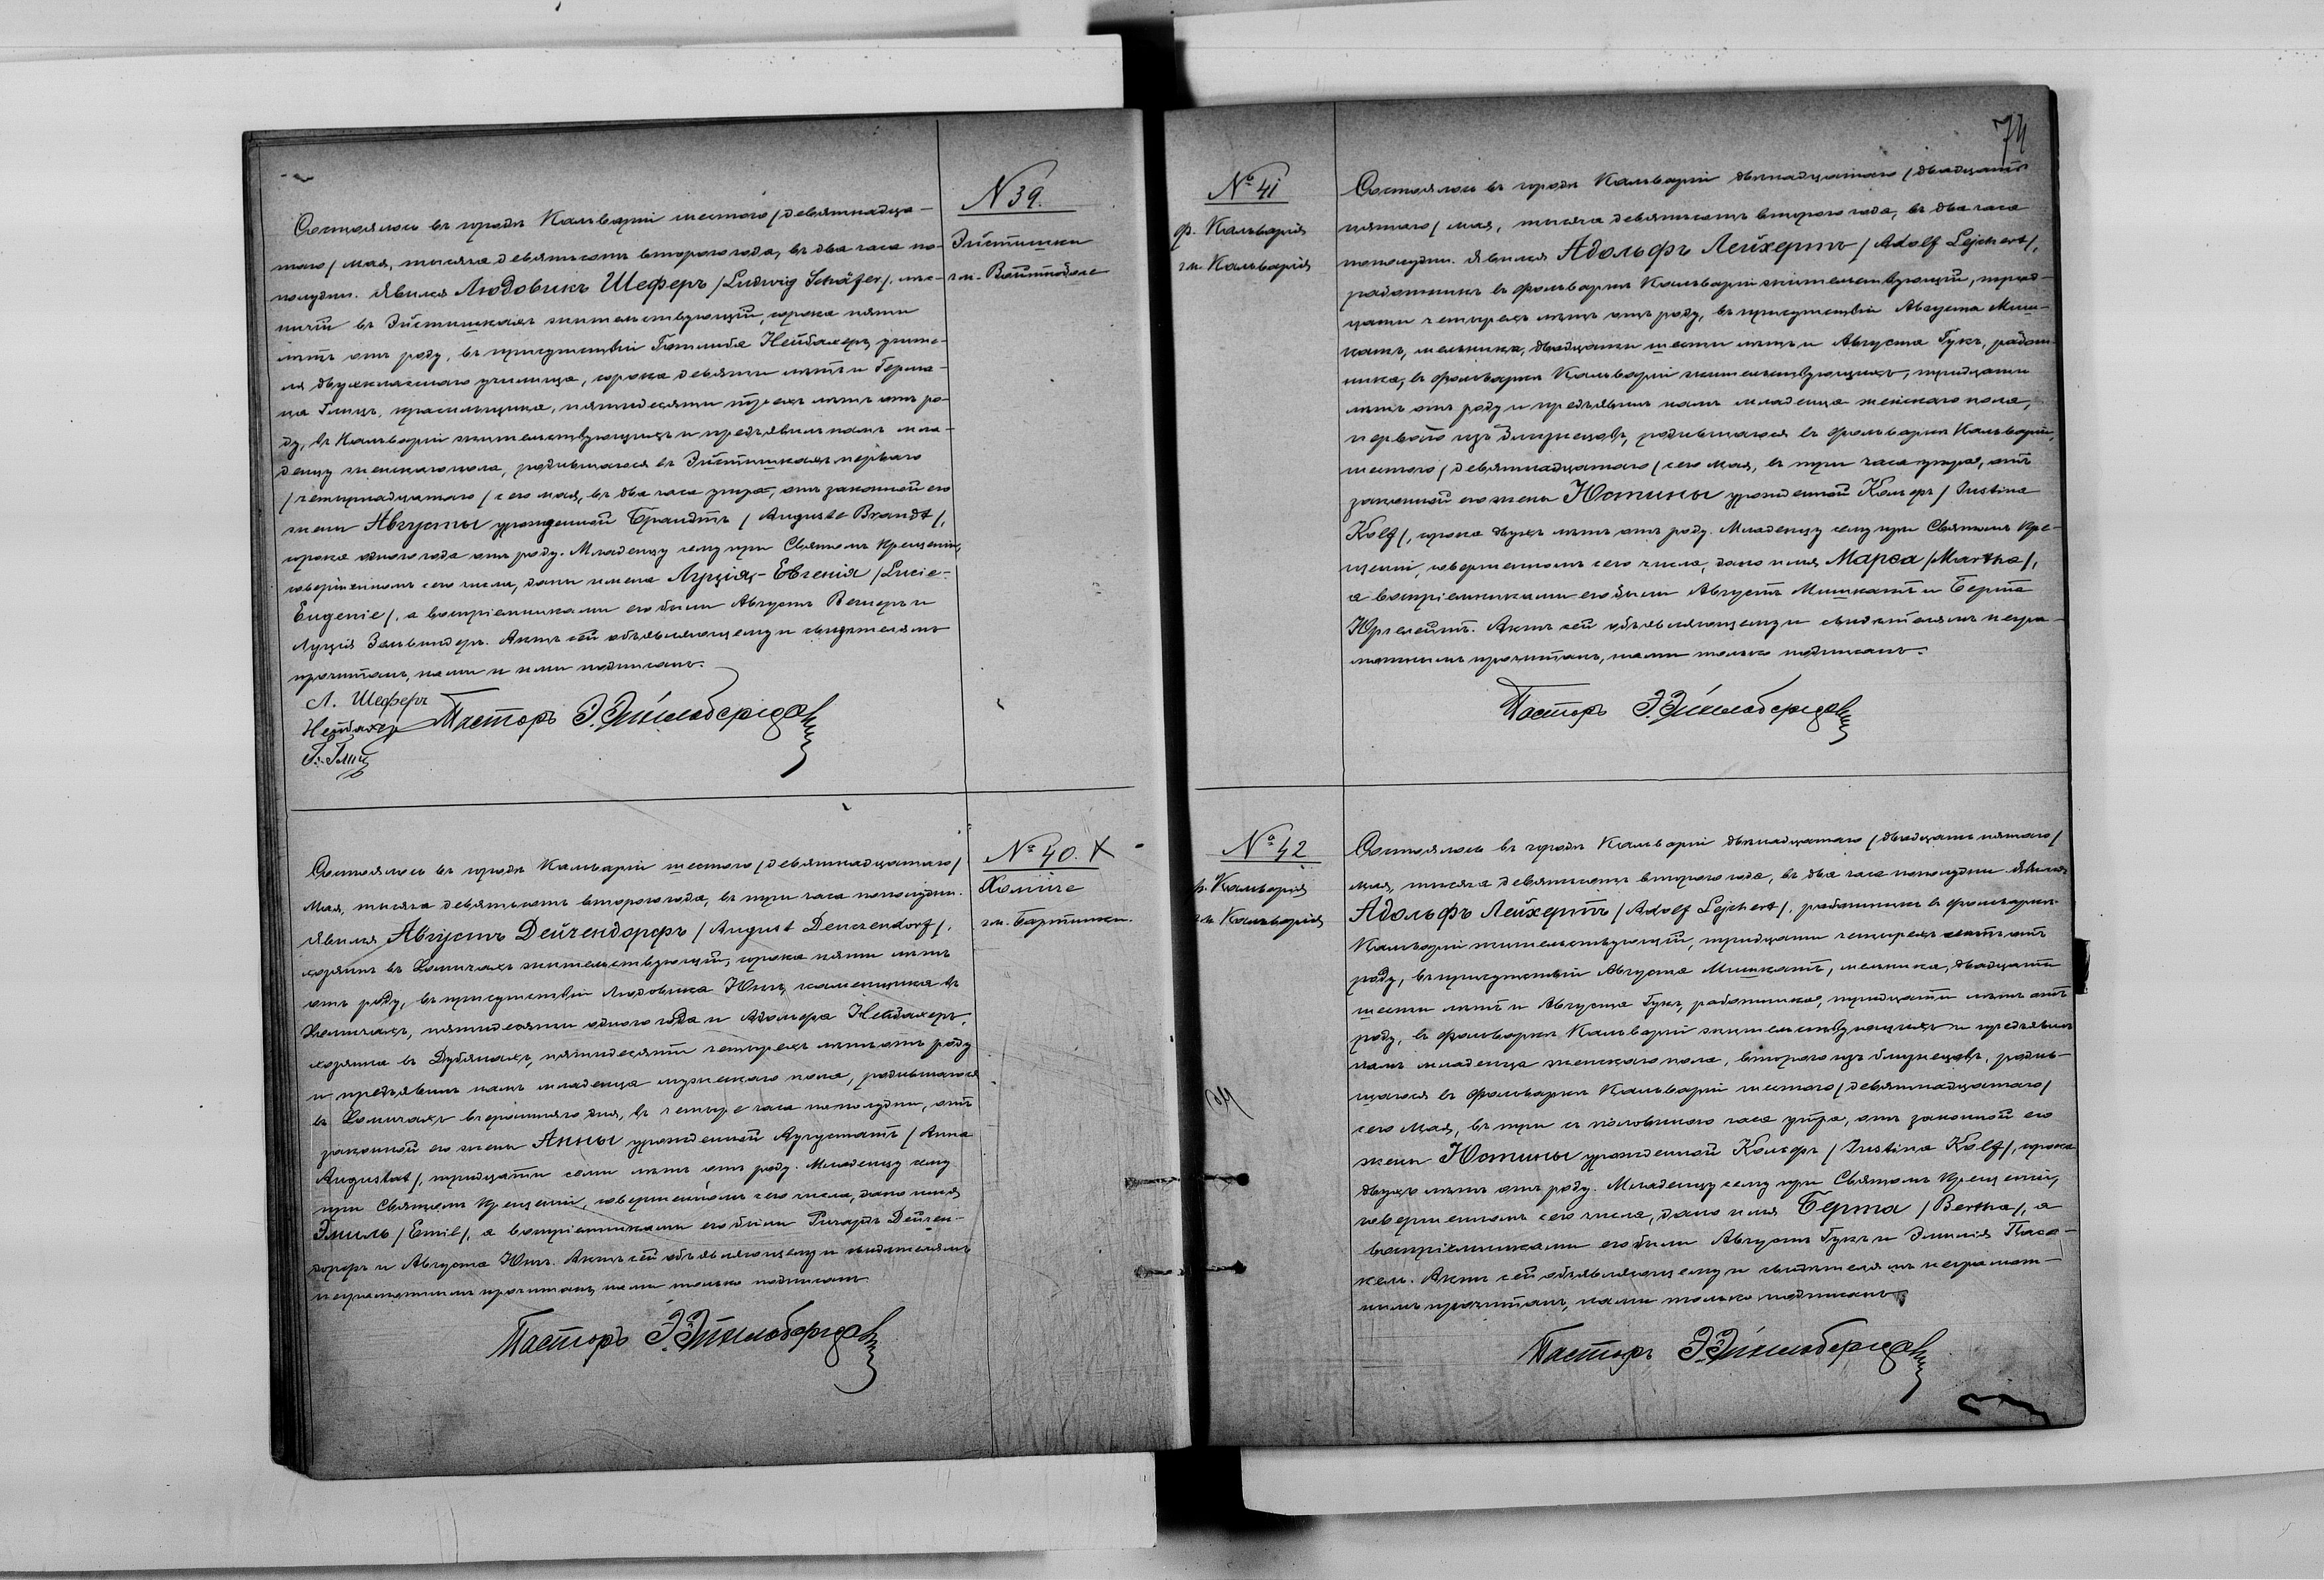 N 39.
Эйстишки
гм. Вейтподе
Состоялось въ городѣ Кальваріи шестого /девятнадца-
таго/ мая, тысяча девятьсотъ второго года, въ два часа по-
полудни. Явился Людовикъ Шеферъ /Ludwig Schäfer/,
въ Эйстишкахъ жительствующій, сорока пяти
лѣтъ отъ роду, въ присутствіи Готлиба Нейбахеръ, учите-
ля двухкласснаго училища, сорока девяти лѣтъ и
Глицъ, красильщика, пятидесяти трехъ лѣтъ отъ ро-
ду, въ Кальваріи жительствующихъ и предъявилъ намъ мла-
денца женскаго пола, родившагося въ Эйстишкахъ перваго
/четырнадцатаго/ сего мая, въ два часа утра, отъ законной его
жены Августы урожденной Брандтъ /Auguste Brandt/,
сорока одного года отъ роду. Младенцу сему при Святомъ Крещеніи,
совершенномъ сего числа, даны имена Луція-Евгенія /Lucie-
Eugenie/, а воспріемниками его были Августъ и
Луція. Актъ сей объявляющему и свидѣтелямъ
прочитанъ, нами и ими подписанъ.
Л. Шеферъ
Нейбахеръ
Г. Глицъ
Пасторъ Э.
№ 40. X
Хомиче
гм. Бартники.
Состоялось въ городѣ Кальваріи шестого /девятнадцатаго/
Мая, тысяча девятьсотъ второго года, въ три часа пополудни.
Явился Августъ Дейчендорфъ /August Deuczendorf/,
хозяинъ въ Хомичахъ жительствующій, сорока пяти лѣтъ
отъ роду, въ присутствіи Людовика Юнъ, каменщика въ
Хомичахъ, пятидесяти одного года и Адольфа Нейбахеръ,
хозяина въ Дубянахъ, пятидесяти четырехъ лѣтъ отъ роду
и предъявилъ намъ младенца мужескаго пола, родившагося
въ Хомичахъ вчерашняго дня, въ четыре часа пополудни, отъ
законной его жены Анны урожденной Аугустатъ /Anna
Augustat/, тридцати семи лѣтъ отъ роду. Младенцу сему
при Святомъ Крещеніи, совершенномъ сего числа, дано имя
Эмиль /Emil/, а воспріемниками его были Рихардъ Дейчен-
дорфъ и Августа Юнъ. Актъ сей объявляющему и свидѣтелямъ
неграмотнымъ прочитанъ, нами только подписанъ.
Пасторъ Э.
74
№ 41
ф. Кальварія
гм. Кальварія
Состоялось въ городѣ Кальваріи двѣнадцатаго /двадцать
пятаго/ мая, тысяча девятьсотъ второго года, въ два часа
пополудни. Явился Адольфъ Лейхертъ /Adolf Lejchert/,
работникъ въ фольваркѣ Кальваріи жительствующій, трид-
цати четырехъ лѣтъ отъ роду, въ присутствіи Августа Миш-
катъ, мельника, двадцати шести лѣтъ и Августа Гукъ, работ-
ника, въ фольваркѣ Кальваріи жительствующихъ, тридцати
лѣтъ отъ роду и предъявилъ намъ младенца женскаго пола,
перваго изъ близнецовъ, родившагося въ фольваркѣ Кальваріи,
шестого /девятнадцатаго/ сего мая, въ три часа утра, отъ
законной его жены Юстины урожденной Кольфъ /Justina
Kolf/, сорока двухъ лѣтъ отъ роду. Младенцу сему при Святомъ Кре-
щеніи, совершенномъ сего числа, дано имя Марѳа /Martha/,
а воспріемниками его были Августъ Мишкатъ и Берта
Юргелейтъ. Актъ сей объявляющему и свидѣтелямъ негра-
мотнымъ прочитанъ, нами только подписанъ.
Пасторъ Э.
№ 42
ф. Кальварія
гм. Кальварія
Состоялось въ городѣ Кальваріи двѣнадцатаго /двадцать пятаго/
мая, тысяча девятьсотъ второго года, въ два часа пополудни. Явился
Адольфъ Лейхертъ /Adolf Lejchert/, работникъ въ фольваркѣ
Кальваріи жительствующій, тридцати четырехъ лѣтъ отъ
роду, въ присутствіи Августа Мишкатъ, мельника, двадцати
шести лѣтъ и Августа Гукъ, работника, тридцати лѣтъ отъ
роду, въ фольваркѣ Кальваріи жительствующихъ и предъявилъ
намъ младенца женскаго пола, второго изъ близнецовъ, родив-
шагося въ фольваркѣ Кальваріи шестого /девятнадцатаго/
сего Мая, въ три съ половиною часа утра, отъ законной его
жены Юстины урожденной Кольфъ /Justina Kolf/, сорока
двухъ лѣтъ отъ роду. Младенцу сему при Святомъ Крещеніи,
совершенномъ сего числа, дано имя Берта /Bertha/, а
воспріемниками его были Августъ Гукъ и Эмилія
Актъ сей объявляющему и свидѣтелямъ неграмот-
нымъ прочитанъ, нами только подписанъ.
Пасторъ Э.